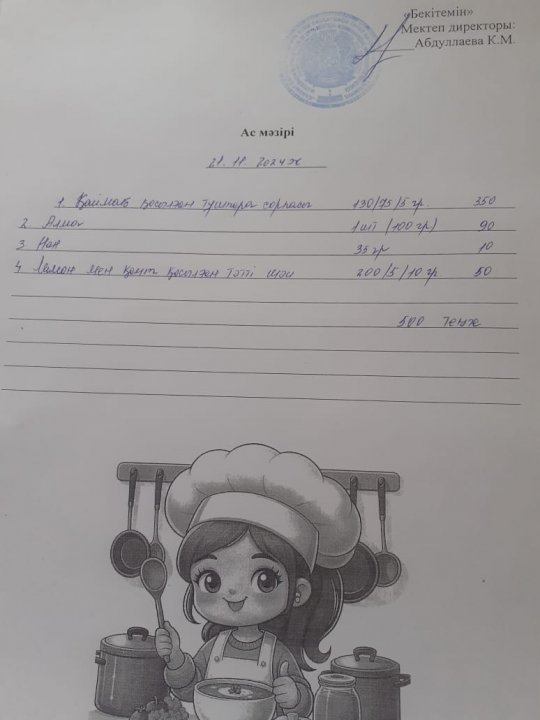 «Бекітемін»
Мектеп директоры:
Абдуллаева К.М.
Ас мәзірі
21. 11. 2024ж
1. Қаймақ қосылған тұшпара сорпасы 130/75/5 гр. 350
2 Алма 1 шт (100 гр) 90
3 Нан 35 гр 10
4 Лимон мен қант қосылған тәтті шәй 200/5/10 гр 50
500 теңге